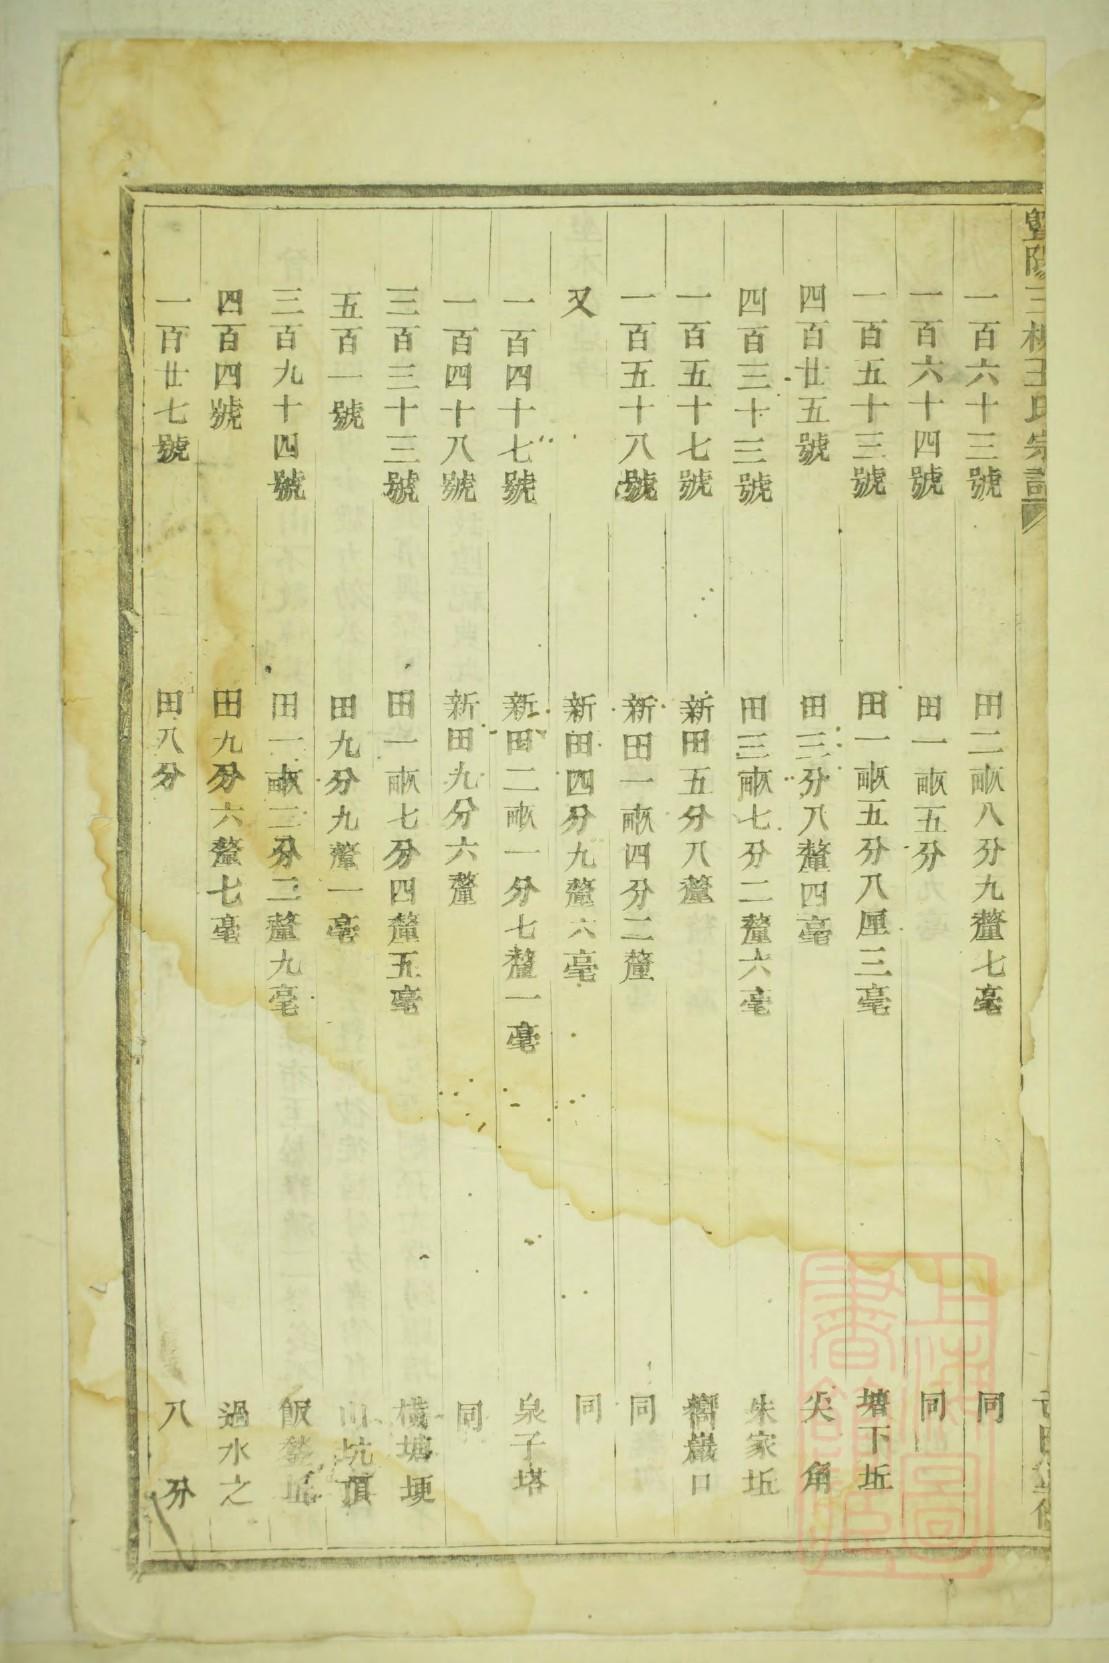 一百六十三號 田二畝八分九釐七毫 同
一百六十四號 田一畝五分 同
一百五十三號 田一畝五分八厘三毫 塘下坵
四百廿五號 田三分八釐四毫 尖角
四百三十三號 田三畝七分二釐六毫 朱家坵
一百五十七號 新田五分八釐 嚮巖口
一百五十八號 新田一畝四分二釐 同
又 新田四分九釐六毫 同
一百四十七號 新田二畝一分七釐一毫 泉子塔
一百四十八號 新田九分六釐 同
三百三十三號 田一畝七分四釐五毫 橫塘埂
五百一號 田九分九釐一毫 山坑頂
三百九十四號 田一畝二分二釐九毫 飯坵
四百四號 田九分六釐七毫 過水之
一百廿七號 田八分 八分
上海圖書館藏